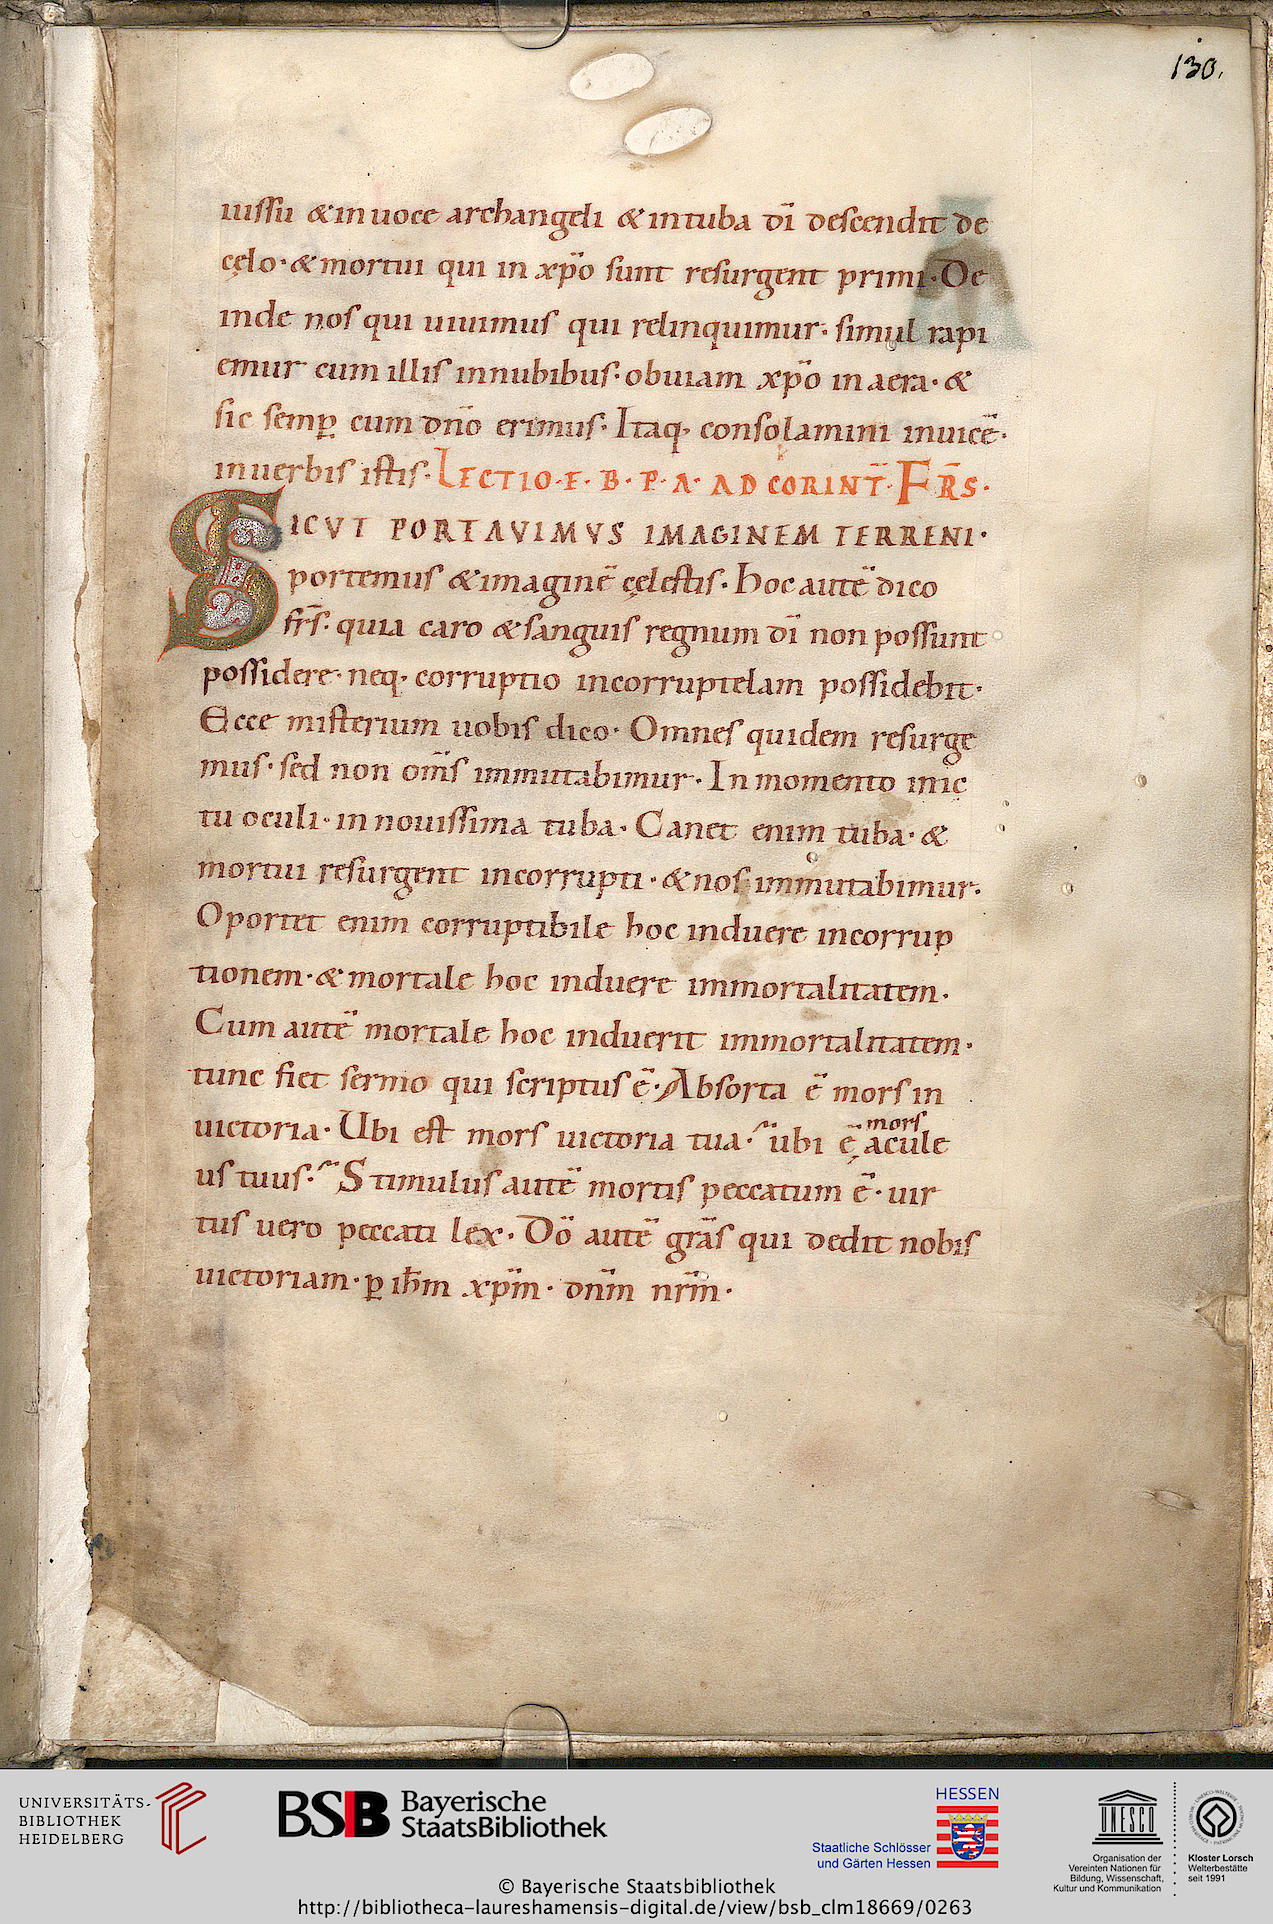 130.
iussu & in uoce archangeli & in tuba dī descendit de
cęlo · & mortui qui in xp̄o sunt resurgent primi · De
inde nos qui uiuimus qui relinquimur · simul rapi
emur cum illis in nubibus · obuiam xp̄o in aera · &
sic semp̱ cum dn̄o erimus · Itaq· consolamini inuicē ·
in uerbis istis · LECTIO · E · B · P · A · AD CORINT̄ · FR̄S ·
SICVT PORTAVIMVS IMAGINEM TERRENI ·
portemus & imaginē cęlestis · hoc autē dico
fr̄s · quia caro & sanguis regnum dī non possunt
possidere · neq· corruptio incorruptelam possidebit ·
Ecce misterium uobis dico · Omnes quidem resurge
mus · sed non om̄s inmutabimur · In momento in ic
tu oculi · in nouissima tuba · Canet enim tuba · &
mortui resurgent incorrupti · & nos immutabimur ·
Oportet enim corruptibile hoc induere incorrup
tionem · & mortale hoc induere immortalitatem ·
Cum autē mortale hoc induerit immortalitatem ·
tunc fiet sermo qui scriptus ē · Absorta ē mors in
uictoria · Ubi est mors uictoria tua · ubi ē mors acule
us tuus · Stimulus autē mortis peccatum ē · uir
tus uero peccati lex · Dō autē gr̄as qui dedit nobis
uictoriam · p̱ ih̄m xp̄m · dn̄m nr̄m ·
UNIVERSITÄTS-
BIBLIOTHEK
HEIDELBERG
BSB Bayerische
StaatsBibliothek
HESSEN
Staatliche Schlösser
und Gärten Hessen
UNESCO
Organisation der
Vereinten Nationen für
Bildung, Wissenschaft,
Kultur und Kommunikation
Kloster Lorsch
Welterbestätte
seit 1991
© Bayerische Staatsbibliothek
http://bibliotheca-laureshamensis-digital.de/view/bsb_clm18669/0263